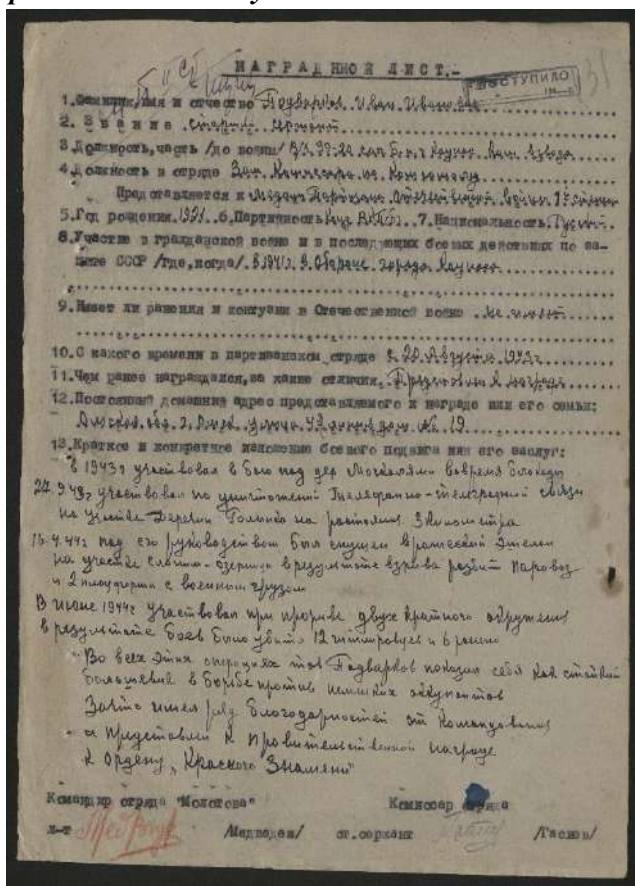 НАГРАДНОЙ ЛИСТ.-
ПОСТУПИЛО
1.Фамилия, имя и отчество Подварков Иван Иванович
2. Звание старший сержант
3.Должность, часть /до войны/
4.Должность в отряде Зам. Комиссара по Комсомолу
Представляется к Медаль Партизану Отечественной войны 1й степени
5.Год рождения 1921 6.Партийность ВКП(б) 7.Национальность Русский
8.Участие в гражданской войне и в последующих боевых действиях по за-
щите СССР /где, когда/ В 1941г. в Обороне города
9.Имеет ли ранения и контузии в Отечественной войне не имеет
10.С какого времени в партизанском отряде с 20 Августа 1943г
11.Чем ранее награждался, за какие отличия
12.Постоянный домашний адрес представляемого к награде или его семьи:
Омская обл. г. улица дом № 19
13.Краткое и конкретное изложение боевого подвига или его заслуг:
в 1943г участвовал в бою под дер вовремя блокады
27.9.43г участвовал по уничтожений телефанно-телеграфной связи
на участке Деревни на растоянии 3 километра
15.4.44г под его руководством был спущен вражеский эшелон
на участке в результате взрыва разбит паровоз
и 2 платформы с военным грузом
В июне 1944г участвовал при прорыве двух кратного окружения
в результате боев было убито 12 гитлеровцев и 6 ранено
Во всех этих операциях тов Подварков показал себя как стойкий
большевик в борьбе против немецких оккупантов
Зачто имел ряд благодарностей от командования
и представлен к правительственной награде
к ордену „Красного Знамени"
Командир отряда "Молотова" Комиссар отряда
л-т /Медведев/ ст.сержант /Таснев/